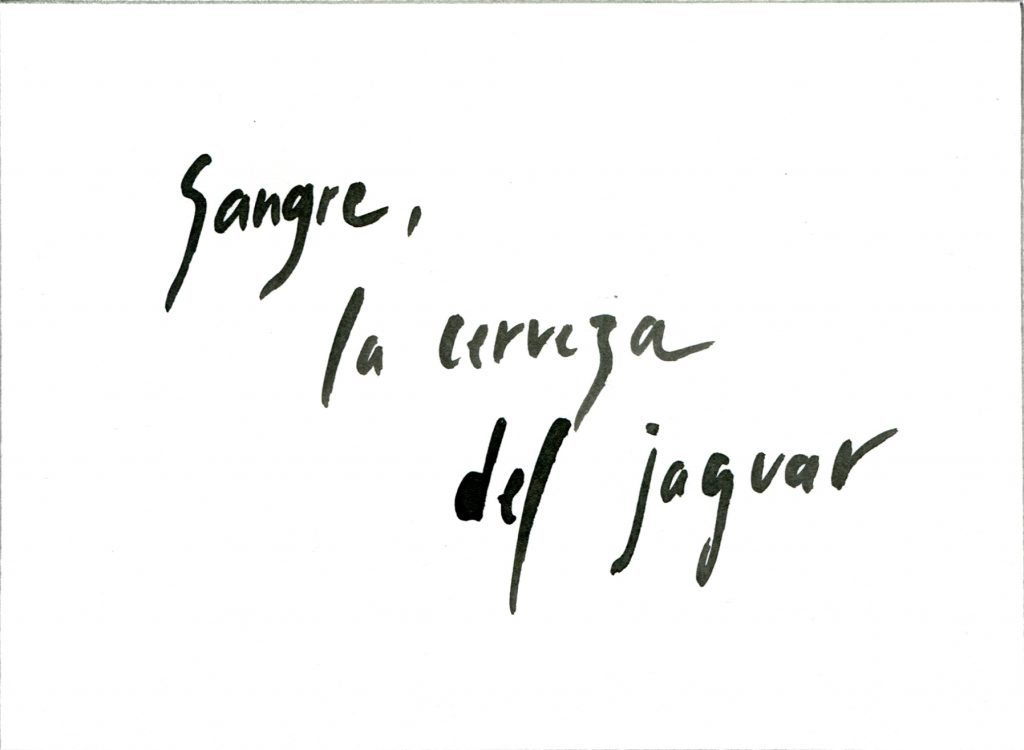 Sangre,
la cerveza
del jaguar